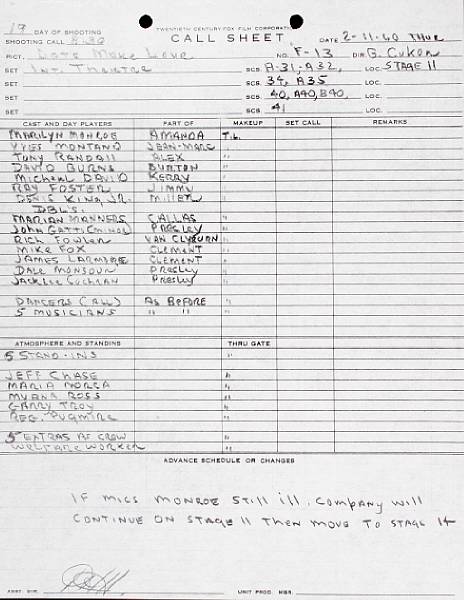 19 DAY OF SHOOTING TWENTIETH CENTURY-FOX FILM CORPORATION
SHOOTING CALL 8:30 CALL SHEET DATE 2-11-60 THUR
PICT. Lets Make Love NO. F-13 DIR. G. Cukor
SET Int. Theatre SCS. A-31, A32, LOC. STAGE 11
SET SCS. 34, A35 LOC.
SET SCS. 40, A40, B40, LOC.
SET SCS. 41 LOC.
CAST AND DAY PLAYERS PART OF MAKEUP SET CALL REMARKS
MARILYN MONROE AMANDA T.L.
YVES MONTAND JEAN-MARC "
TONY RANDALL ALEX "
DAVID BURNS BURTON "
Michael DAVID KERRY "
RAY FOSTER JIMMY "
DENIS KING, JR. MILLER "
DBL'S.
MARIAN MANNERS CALLAS "
JOHN GATTI (MINOR) PRESLEY "
RICH FOWLER VAN CLYBURN "
MIKE FOX CLEMENT "
JAMES LARMORE CLEMENT "
DALE MONSOUR PRESLEY "
JACKLEE COCHRAN PRESLEY "
DANCERS (ALL) AS BEFORE "
5 MUSICIANS " " "
ATMOSPHERE AND STANDINS THRU GATE
5 STAND-INS "
JEFF CHASE "
MARIA "
MYRNA ROSS "
GARRY TROY "
REG. PUGMIRE "
5 EXTRAS AS CREW "
WELFARE WORKER "
ADVANCE SCHEDULE OR CHANGES
IF MISS MONROE STILL ILL. COMPANY WILL
CONTINUE ON STAGE 11 THEN MOVE TO STAGE 14
ASST. DIR. UNIT PROD. MGR.